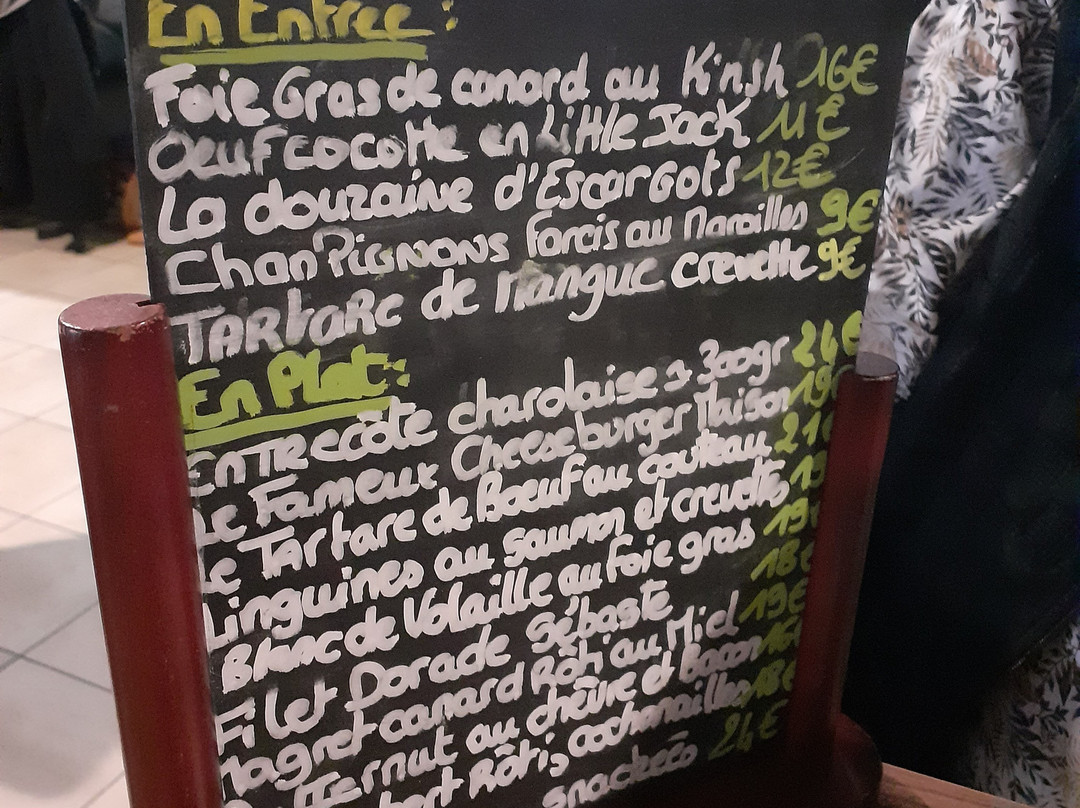 En Entrée :
Foie Gras de canard au Kirsh 16€
Oeuf cocotte en Little Jack 11€
La douzaine d'Escargots 12€
Chanpignons Farcis au Maroilles 9€
Tartare de Mangue crevette 9€
En Plat :
Entrecôte charolaise ≥ 300gr 24€
Le Fameux Cheese burger Maison 19
Le Tartare de Boeuf au couteau 21
Linguines au saumon et crevettes 19
Blanc de Volaille au Foie gras 19
Filet Dorade Sébaste 18
Magret canard Rôti au Miel 19€
au chèvre et Bacon 16
Rôti, cochonailles 18€
snackées 24€